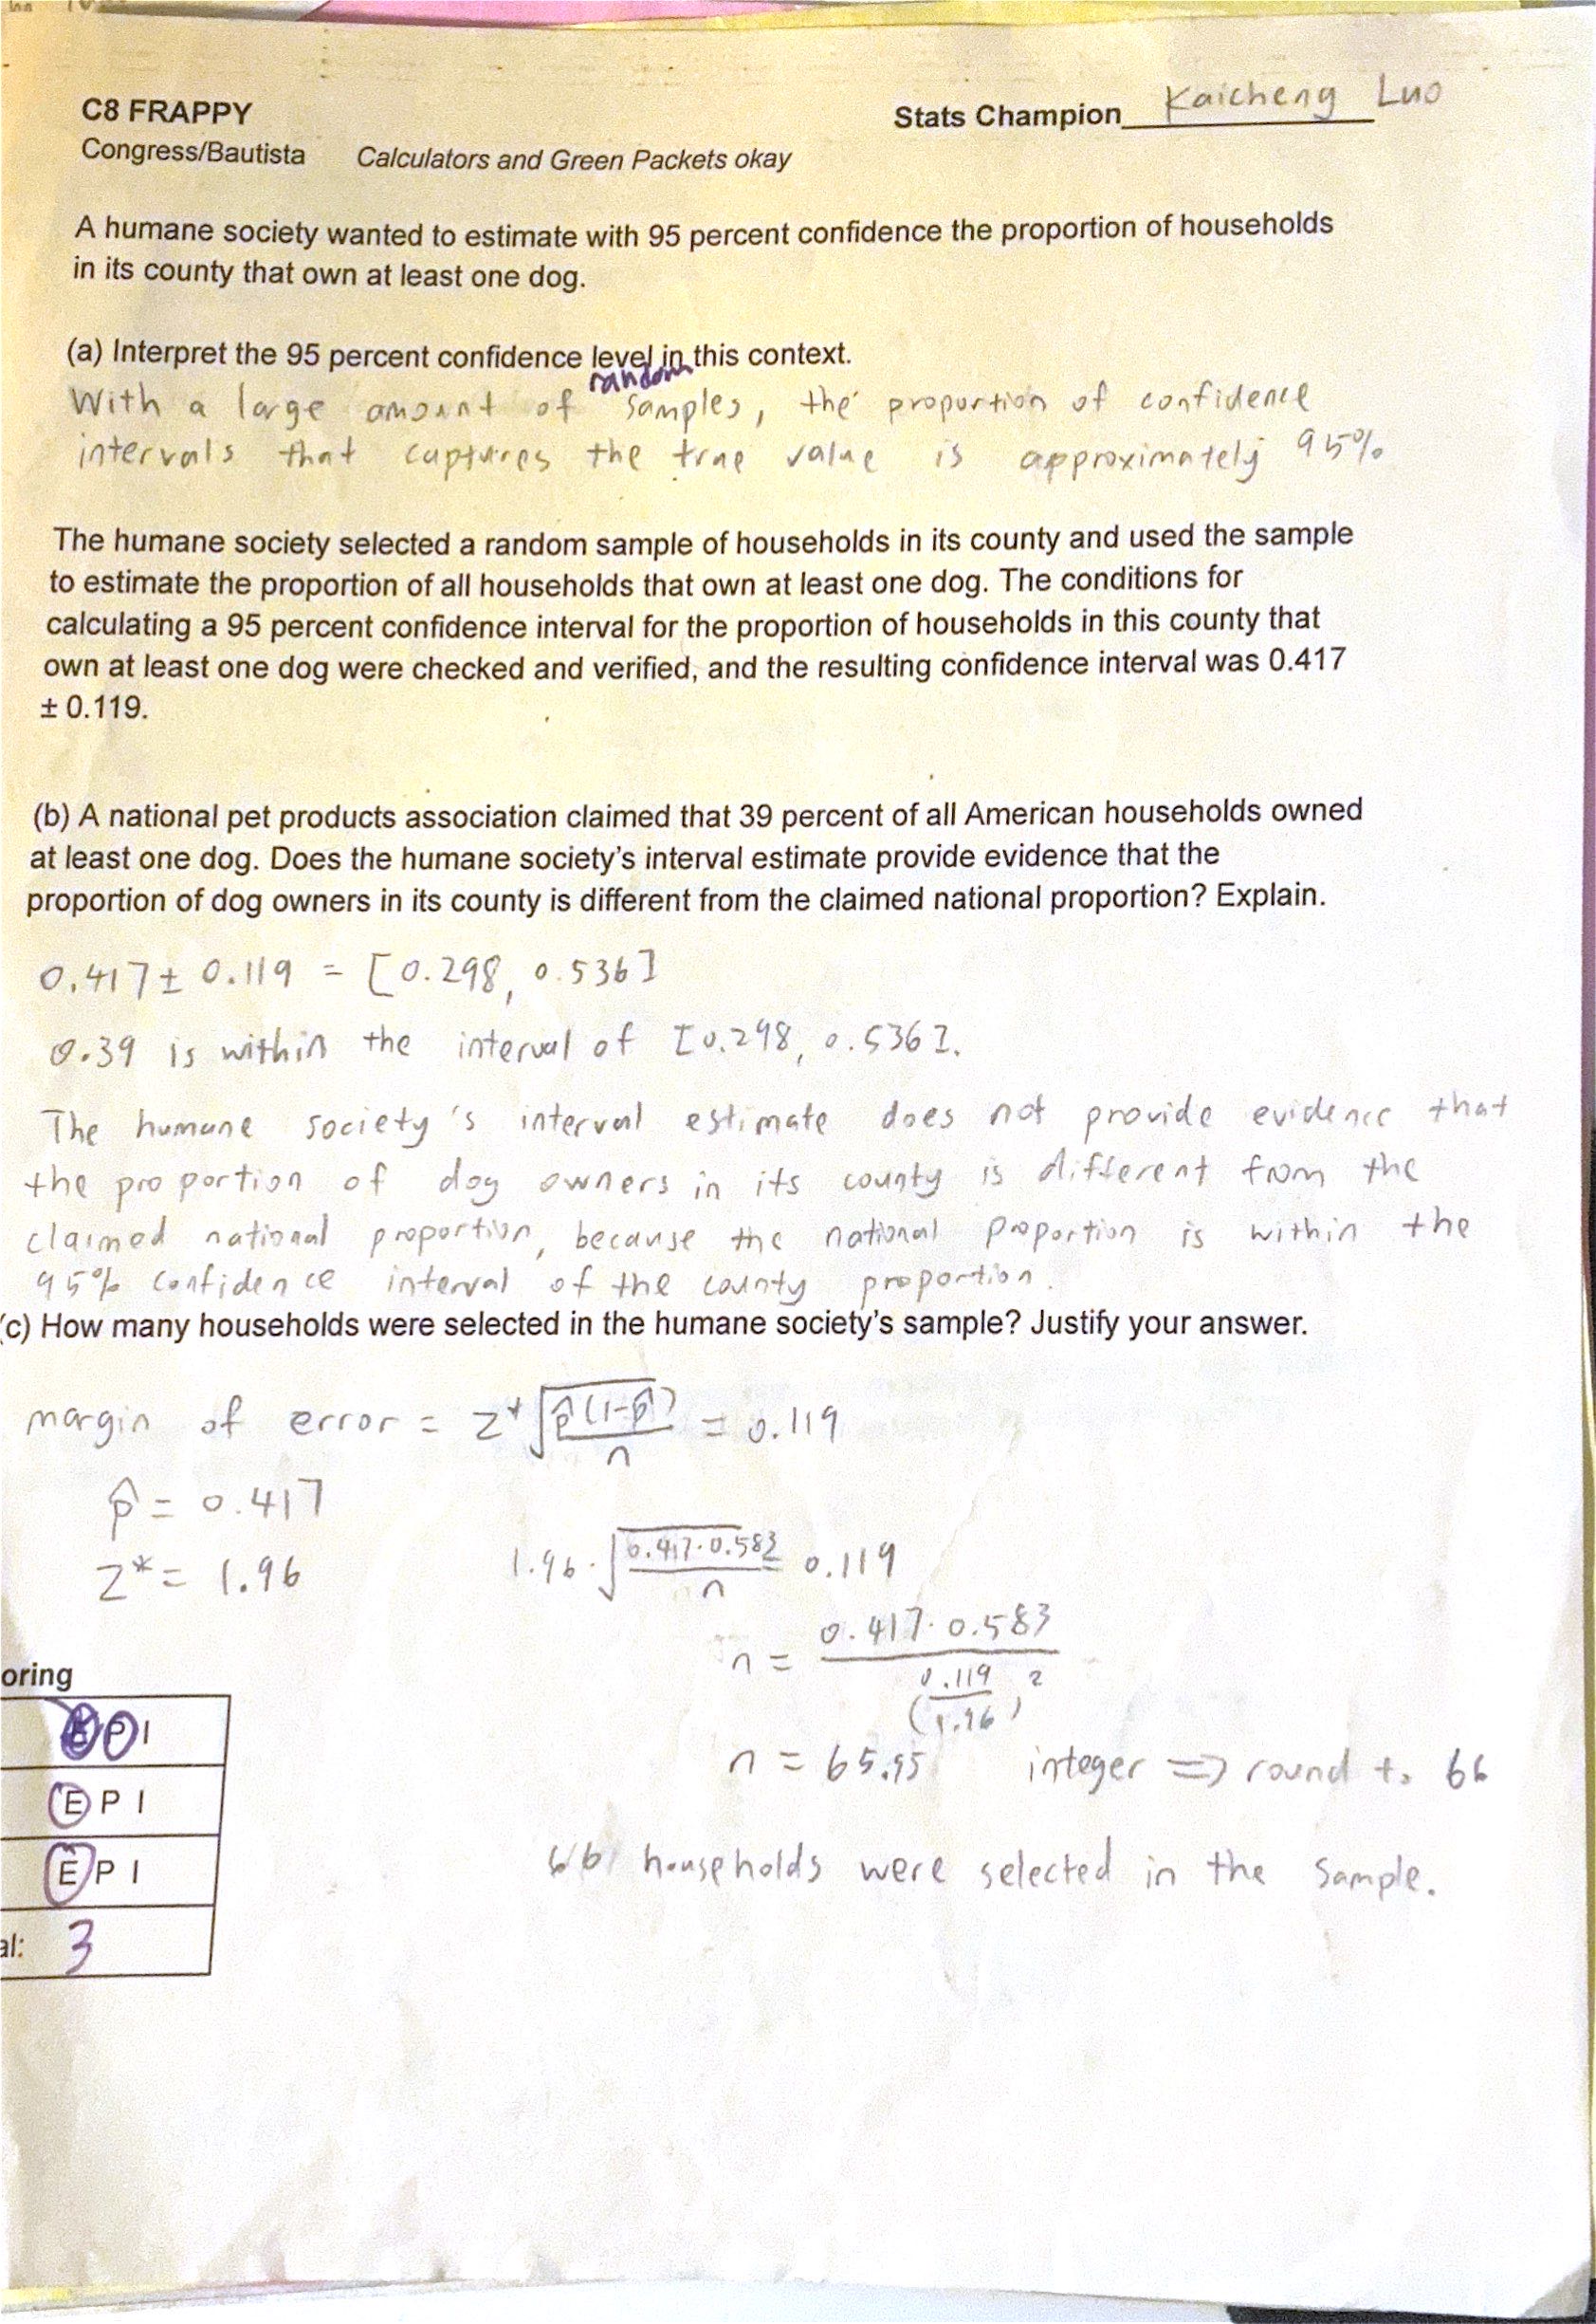 C8 FRAPPY
Stats Champion Kaicheng Luo
Congress/Bautista Calculators and Green Packets okay
A humane society wanted to estimate with 95 percent confidence the proportion of households
in its county that own at least one dog.
(a) Interpret the 95 percent confidence level in this context.
random
With a large amount of samples, the proportion of confidence
intervals that captures the true value is approximately 95%
The humane society selected a random sample of households in its county and used the sample
to estimate the proportion of all households that own at least one dog. The conditions for
calculating a 95 percent confidence interval for the proportion of households in this county that
own at least one dog were checked and verified, and the resulting confidence interval was 0.417
± 0.119.
(b) A national pet products association claimed that 39 percent of all American households owned
at least one dog. Does the humane society's interval estimate provide evidence that the
proportion of dog owners in its county is different from the claimed national proportion? Explain.
0.417 ± 0.119 = [0.298, 0.536]
0.39 is within the interval of [0.298, 0.536].
The humane society's interval estimate does not provide evidence that
the proportion of dog owners in its county is different from the
claimed national proportion, because the national proportion is within the
95% confidence interval of the county proportion.
(c) How many households were selected in the humane society's sample? Justify your answer.
margin of error = z* √(p̂(1-p̂)/n) = 0.119
p̂ = 0.417
z* = 1.96
1.96 · √(0.417·0.583/n) = 0.119
n = 0.417·0.583 / (0.119/1.96)²
n = 65.95 integer ⇒ round to 66
66 households were selected in the sample.
oring
E P I
E P I
E P I
al: 3